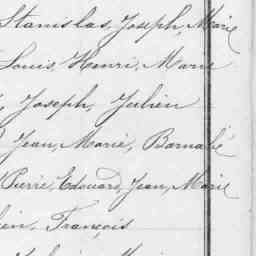 Stanislas, Joseph, Marie
Louis, Henri, Marie
Joseph, Julien
Jean, Marie, Barnabé
Pierre, Edouard, Jean, Marie
François